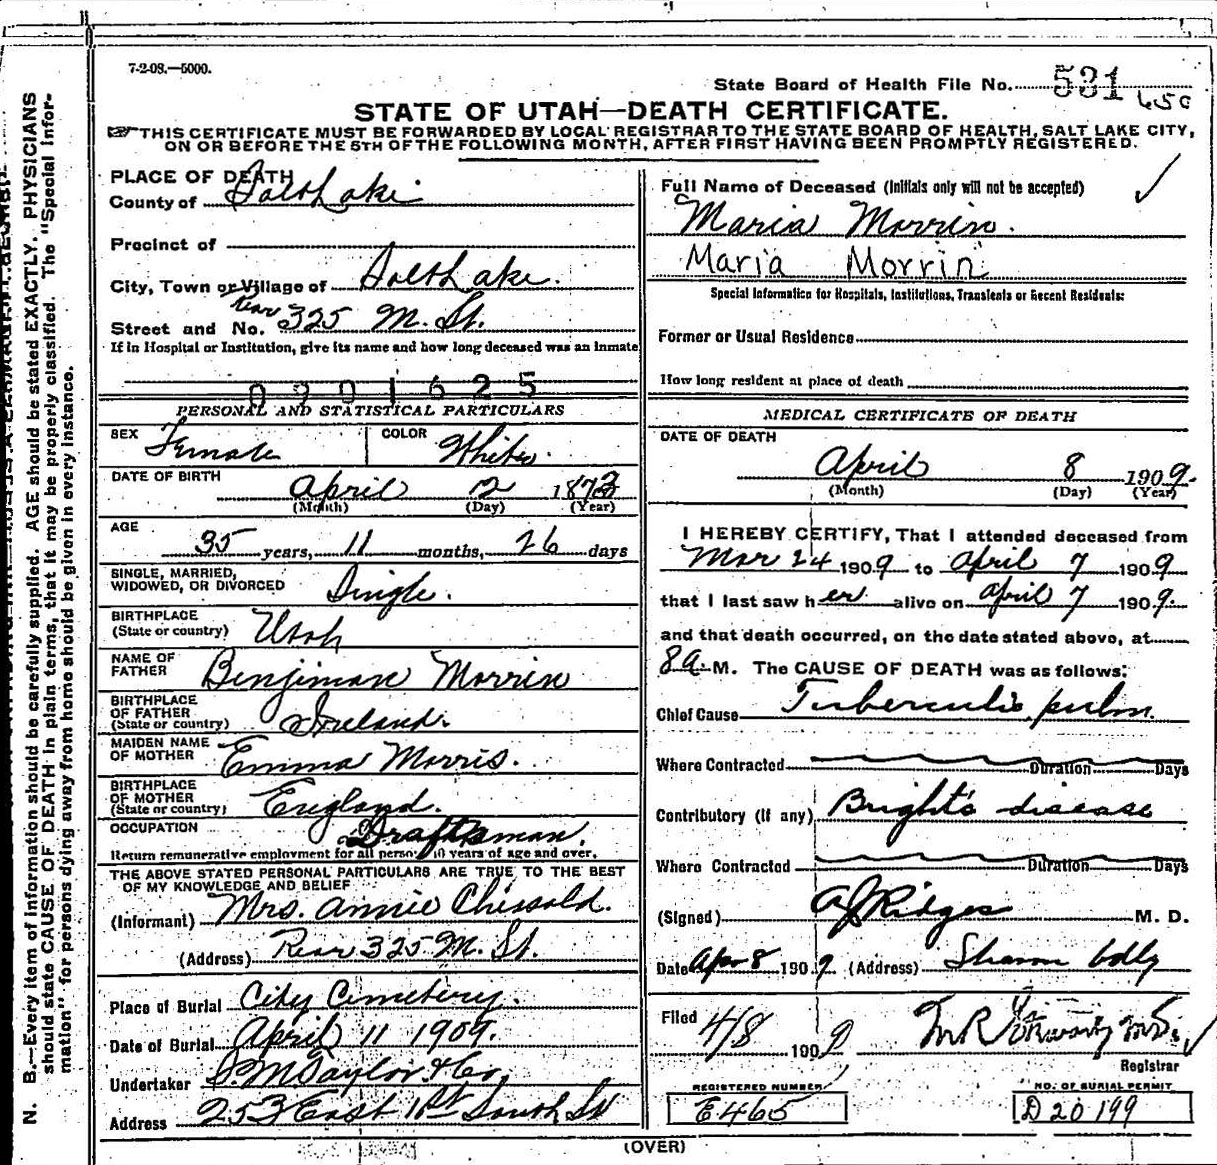 7-2-08.—5000.
State Board of Health File No. 531
650
STATE OF UTAH—DEATH CERTIFICATE.
THIS CERTIFICATE MUST BE FORWARDED BY LOCAL REGISTRAR TO THE STATE BOARD OF HEALTH, SALT LAKE CITY,
ON OR BEFORE THE 5TH OF THE FOLLOWING MONTH, AFTER FIRST HAVING BEEN PROMPTLY REGISTERED.
PLACE OF DEATH
County of Salt Lake
Precinct of
City, Town or Village of Salt Lake.
Street and No. Rear 325 M. St.
If in Hospital or Institution, give its name and how long deceased was an inmate
0901625
PERSONAL AND STATISTICAL PARTICULARS
SEX Female COLOR White.
DATE OF BIRTH April 2 1873
(Month) (Day) (Year)
AGE 35 years, 11 months, 26 days
SINGLE, MARRIED,
WIDOWED, OR DIVORCED Single.
BIRTHPLACE
(State or country) Utah
NAME OF
FATHER Benjiman Morrin
BIRTHPLACE
OF FATHER
(State or country) Ireland.
MAIDEN NAME
OF MOTHER Emma Morris.
BIRTHPLACE
OF MOTHER
(State or country) England.
OCCUPATION Draftsman.
Return remunerative employment for all persons 10 years of age and over.
THE ABOVE STATED PERSONAL PARTICULARS ARE TRUE TO THE BEST
OF MY KNOWLEDGE AND BELIEF
(Informant) Mrs. Annie Chissold.
(Address) Rear 325 M. St.
Place of Burial City Cemetery.
Date of Burial April 11 1909.
Undertaker S. M. Taylor & Co.
Address 253 East 1st South St
Full Name of Deceased (Initials only will not be accepted)
Maria Morrin.
Maria Morrin
Special Information for Hospitals, Institutions, Transients or Recent Residents:
Former or Usual Residence
How long resident at place of death
MEDICAL CERTIFICATE OF DEATH
DATE OF DEATH
April 8 1909.
(Month) (Day) (Year)
I HEREBY CERTIFY, That I attended deceased from
Mar 24 1909 to April 7 1909
that I last saw her alive on April 7 1909.
and that death occurred, on the date stated above, at
8 a. M. The CAUSE OF DEATH was as follows:
Chief Cause Tuberculis pulm.
Where Contracted Duration Days
Contributory (if any) Bright's disease
Where Contracted Duration Days
(Signed) A J Ridges M. D.
Date Apr 8 1909 (Address) Sharon bdlg
Filed 4/8 1909
Registrar
REGISTERED NUMBER
E465
NO. OF BURIAL PERMIT
D 20199
(OVER)
N. B.—Every item of information should be carefully supplied. AGE should be stated EXACTLY. PHYSICIANS
should state CAUSE OF DEATH in plain terms, that it may be properly classified. The "Special Infor-
mation" for persons dying away from home should be given in every instance.